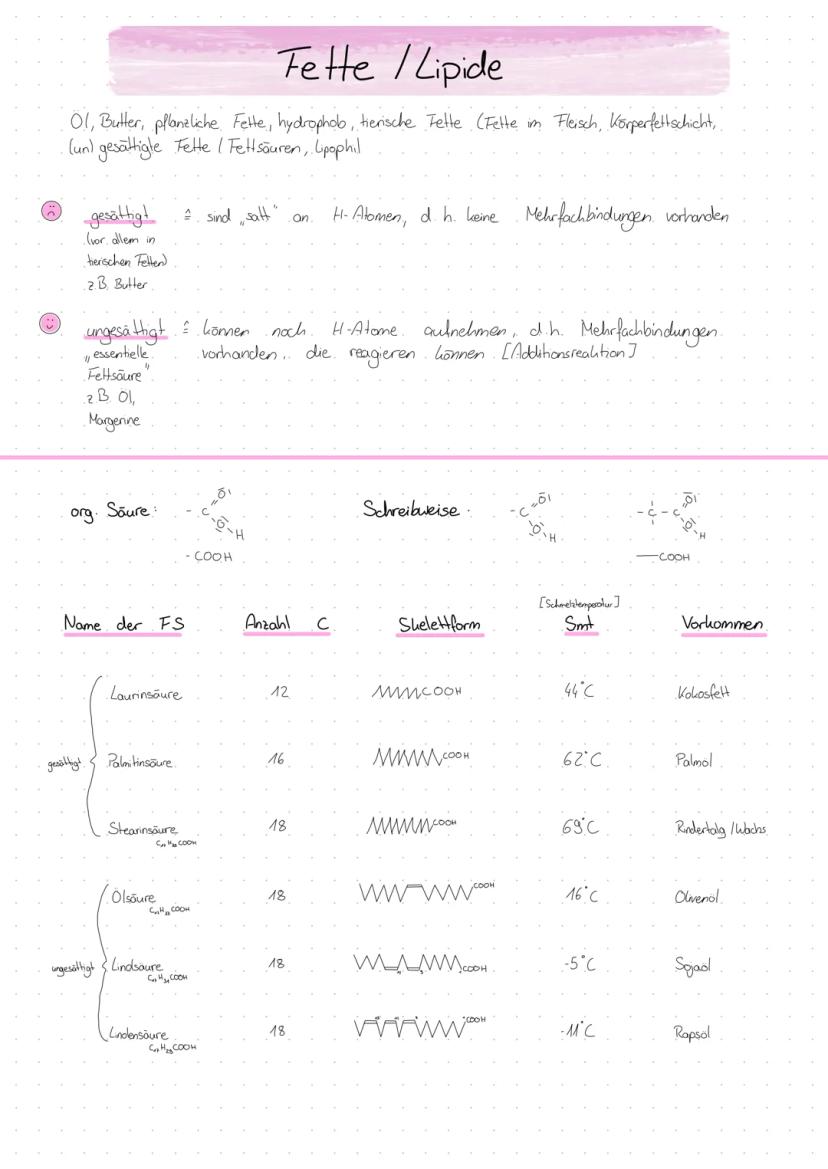 Fette / Lipide
Öl, Butter, pflanzliche Fette, hydrophob, tierische Fette (Fette im Fleisch, Körperfettschicht,
(un)gesättigte Fette / Fettsäuren, lipophil
gesättigt ≙ sind „satt“ an H-Atomen, d.h. keine Mehrfachbindungen vorhanden
(vor allem in
tierischen Fetten)
z.B. Butter
ungesättigt ≙ können noch H-Atome aufnehmen, d.h. Mehrfachbindungen
„essentielle vorhanden, die reagieren können [Additionsreaktion]
Fettsäure“
z.B. Öl,
Margerine
org. Säure: -C O O H Schreibweise: -C O O H -C-C O O H
-COOH —COOH
[Schmelztemperatur]
Name der FS Anzahl C Skelettform Smt Vorkommen
Laurinsäure 12 COOH 44°C Kokosfett
gesättigt Palmitinsäure 16 COOH 62°C Palmöl
Stearinsäure 18 COOH 69°C Rindertalg / Wachs
Ölsäure 18 COOH 16°C Olivenöl
C₁₇H₃₃COOH
ungesättigt Linolsäure 18 COOH -5°C Sojaöl
C₁₇H₃₁COOH
Linolensäure 18 COOH -11°C Rapsöl
C₁₇H₂₉COOH